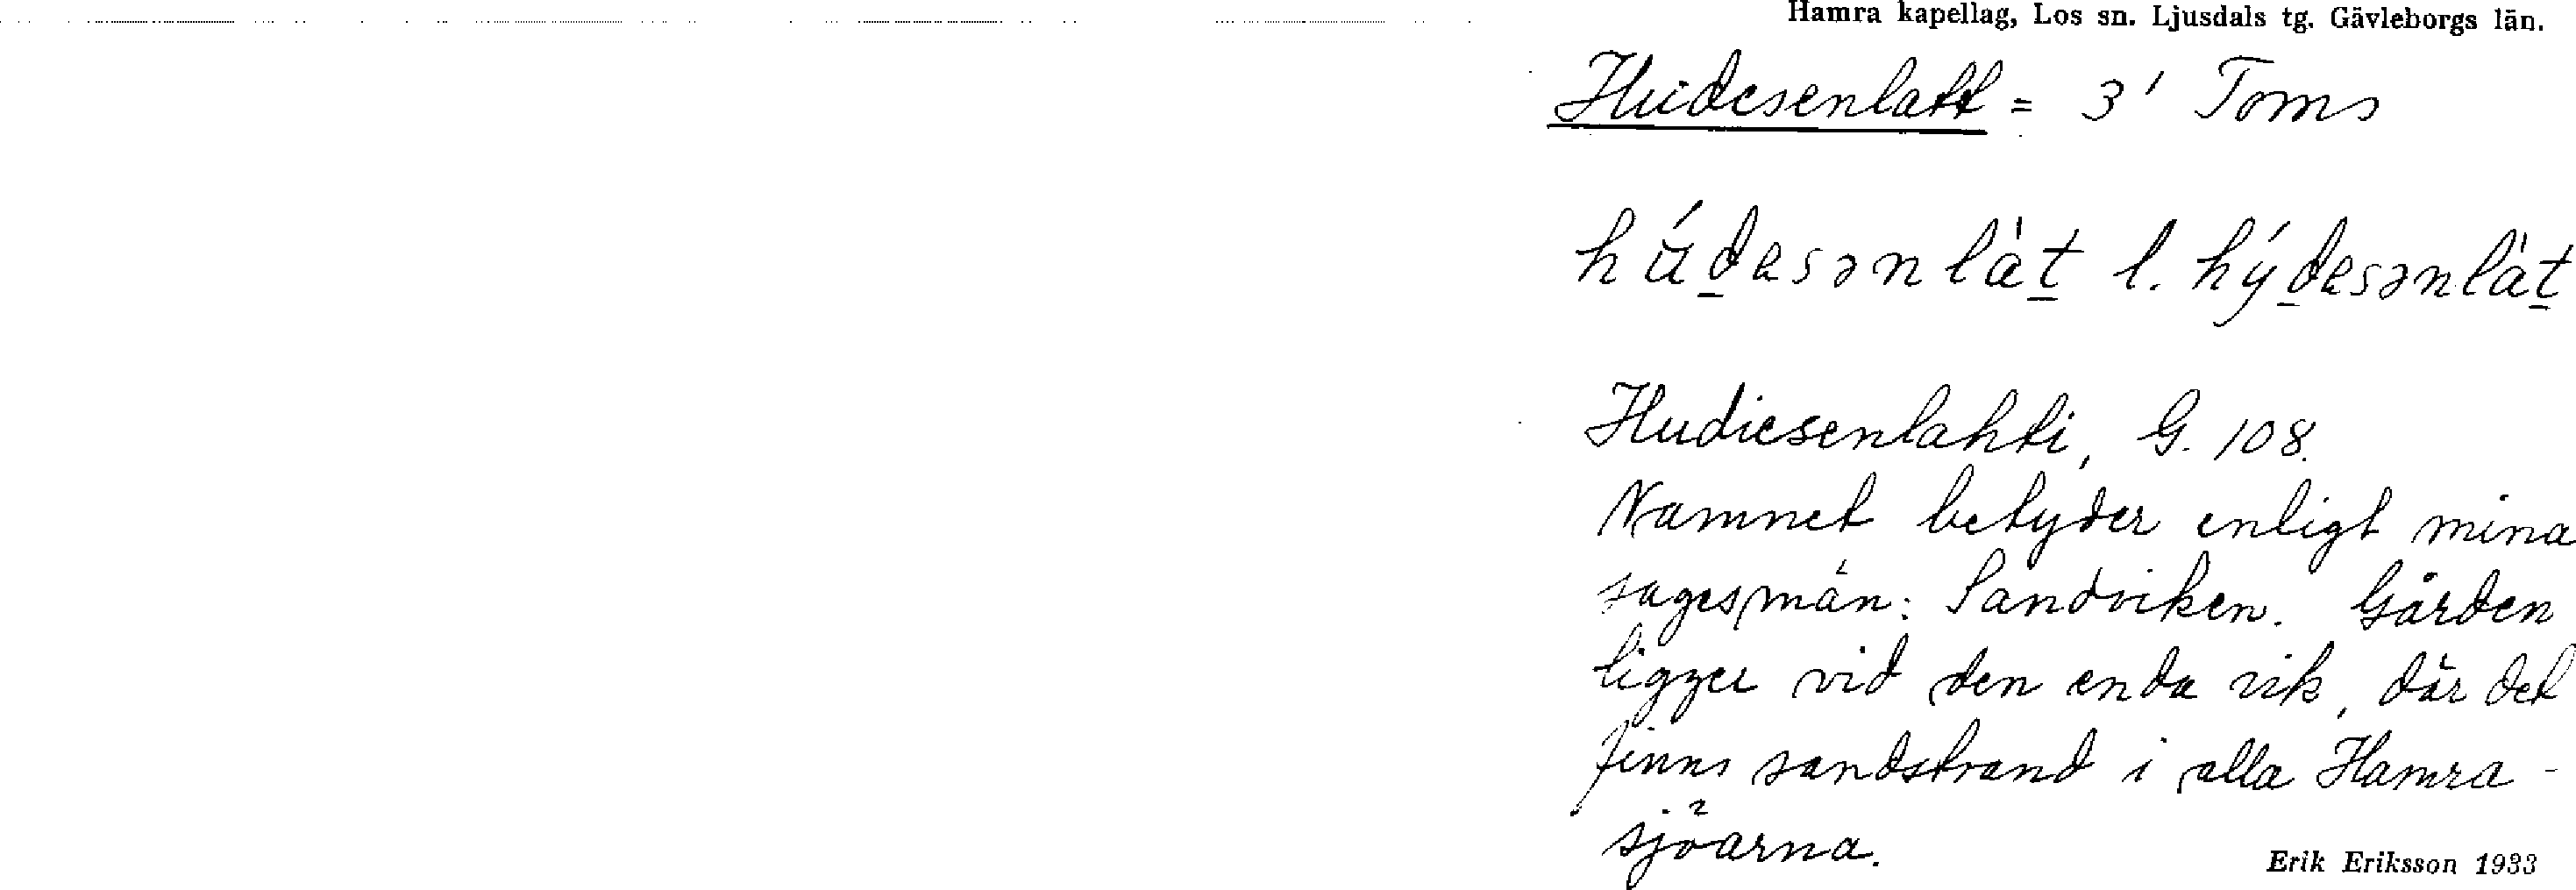 Hamra kapellag, Los sn. Ljusdals tg. Gävleborgs län.
Hudesenlatt = 3' Toms
hú̆d̲esənlàt̲ l. hýd̲esənlàt̲
Hudiesenlahti, G. 108.
Namnet betyder enligt mina
sagesmän: Sandviken. Gården
ligger vid den enda vik, där det
finns sandstrand i alla Hamra-
sjöarna.
Erik Eriksson 1933